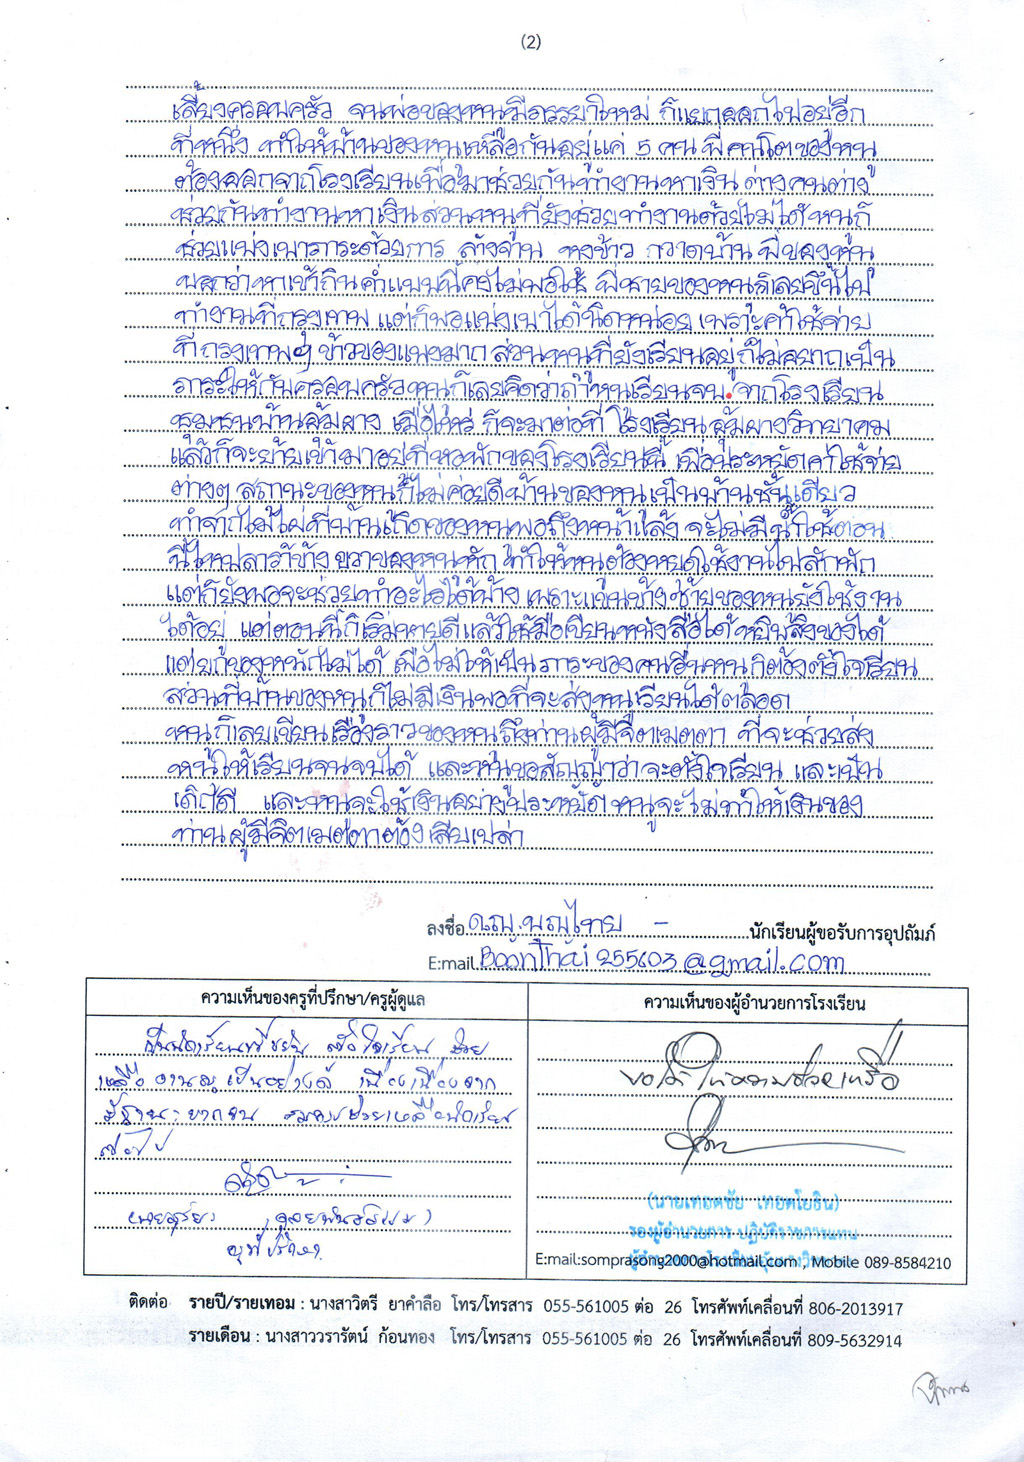 (2)
เลี้ยงครอบครัว จนพ่อของหนูมีภรรยาใหม่ ก็แยกออกไปอยู่อีก
ที่หนึ่ง ทำให้บ้านของหนูเหลือกันอยู่แค่ 5 คน พี่คนโตของหนู
ต้องออกจากโรงเรียนเพื่อมาช่วยกันทำงานหาเงิน ต่างคนต่าง
ช่วยกันทำงานหาเงิน ส่วนหนูที่ยังช่วยทำงานด้วยไม่ได้ หนูก็
ช่วยแบ่งเบาภาระด้วยการ ล้างจาน หุงข้าว กวาดบ้าน พี่ของหนู
บอกว่าหาเช้ากินค่ำแบบนี้คงไม่พอใช้ พี่ชายของหนูก็เลยขึ้นไป
ทำงานที่กรุงเทพ แต่ก็พอแบ่งเบาได้นิดหน่อย เพราะค่าใช้จ่าย
ที่กรุงเทพฯ ข้าวของแพงมาก ส่วนหนูที่ยังเรียนอยู่ก็ไม่อยากเป็น
ภาระให้กับครอบครัว หนูก็เลยคิดว่าถ้าหนูเรียนจบ จากโรงเรียน
ชุมชนบ้านอุ้มผาง เมื่อไหร่ ก็จะมาต่อที่ โรงเรียนอุ้มผางวิทยาคม
แล้วก็จะย้ายเข้ามาอยู่ที่หอพักของโรงเรียนนี้ เพื่อประหยัดค่าใช้จ่าย
ต่างๆ สถานะของหนูก็ไม่ค่อยดี บ้านของหนูเป็นบ้านชั้นเดียว
ทำจากไม้ไผ่ ที่บ้านเกิดของหนูพอถึงหน้าแล้ง จะไม่มีน้ำใช้ ตอน
นี้ไหปลาร้าข้างขวาของหนูหัก ทำให้หนูต้องหยุดใช้งานไปสักพัก
แต่ก็ยังพอจะช่วยทำอะไรได้บ้าง เพราะแขนข้างซ้ายของหนูยังใช้งาน
ได้อยู่ แต่ตอนนี้ก็เริ่มหายดีแล้วใช้มือเขียนหนังสือได้ หยิบสิ่งของได้
แต่ยกของหนักไม่ได้ เพื่อไม่ให้เป็น ภาระของคนอื่นหนูก็ต้องตั้งใจเรียน
ส่วนที่บ้านของหนูก็ไม่มีเงินพอที่จะส่งหนูเรียนได้ตลอด
หนูก็เลยเขียนเรื่องราวของหนูถึงท่านผู้มีจิตเมตตา ที่จะช่วยส่ง
หนูให้เรียนจนจบได้ และหนูขอสัญญาว่าจะตั้งใจเรียน และเป็น
เด็กดี และหนูจะใช้เงินอย่างประหยัด หนูจะไม่ทำให้เงินของ
ท่านผู้มีจิตเมตตาต้องเสียเปล่า
ลงชื่อ ด.ญ. บุญไทย - นักเรียนผู้ขอรับการอุปถัมภ์
E:mail. BoonThai255603@gmail.com
ความเห็นของครูที่ปรึกษา/ครูผู้ดูแล
เป็นนักเรียนที่ขยัน ตั้งใจเรียน ช่วย
เหลืองานครูเป็นอย่างดี เนื่องจาก
มีฐานะยากจน ช่วยเหลือนักเรียน
ครูที่ปรึกษา
ความเห็นของผู้อำนวยการโรงเรียน
ขอได้ให้ความช่วยเหลือ
(นายเทอดชัย เทอดโยธิน)
รองผู้อำนวยการ ปฏิบัติราชการแทน
E:mail:somprasong2000@hotmail.com , Mobile 089-8584210
ติดต่อ รายปี/รายเทอม : นางสาวิตรี ยาคำลือ โทร/โทรสาร 055-561005 ต่อ 26 โทรศัพท์เคลื่อนที่ 806-2013917
รายเดือน : นางสาววรารัตน์ ก้อนทอง โทร/โทรสาร 055-561005 ต่อ 26 โทรศัพท์เคลื่อนที่ 809-5632914